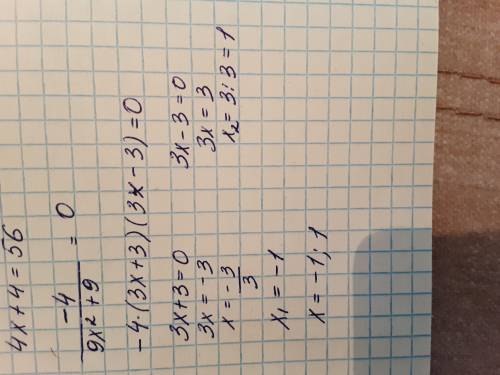 4x+4=56
-4/(9x²+9) = 0
-4·(3x+3)(3x-3)=0
3x+3=0 3x-3=0
3x=-3 3x=3
x=-3/3 x₂=3:3=1
x₁=-1
x=-1;1